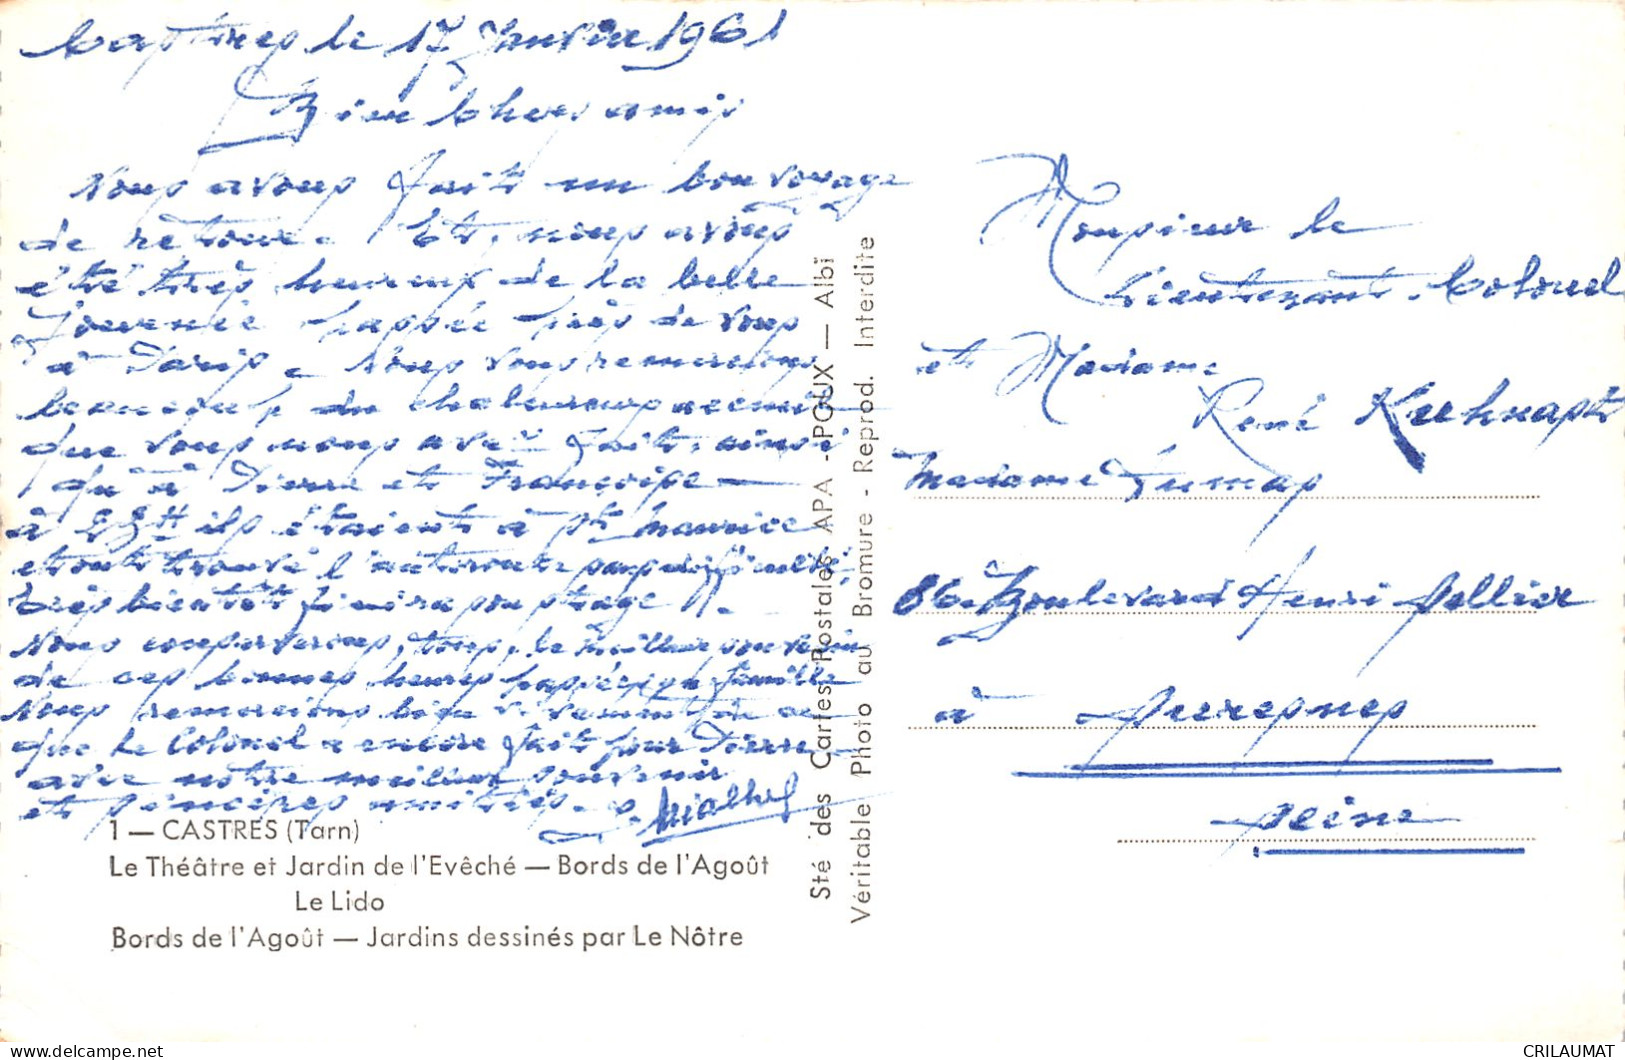 Castres le 17 Janvier 1961
Bien Chers amis
Nous avons fait un bon voyage
de retour. Et, nous avons
été très heureux de la belle
journée passée près de vous
à Paris. Nous vous remercions
beaucoup du chaleureux accueil
que vous nous avez fait, ainsi
qu'à Pierre et Françoise —
à ils étaient à St Maurice
et ont trouvé l'autoroute sans difficultés,
très bientôt finira son stage
Nous conserverons, tous, le meilleur souvenir
de ces bonnes heures passées en famille
Nous remercions bien vivement de ce
que le Colonel a encore fait pour Pierre
avec notre meilleur souvenir
et sincères amitiés.
1 — CASTRES (Tarn)
Le Théâtre et Jardin de l'Evêché — Bords de l'Agoût
Le Lido
Bords de l'Agoût — Jardins dessinés par Le Nôtre
Sté des Cartes Postales APA - POUX — Albi
Véritable Photo au Bromure - Reprod. Interdite
Monsieur le
Lieutenant-Colonel
et Madame
René
Madame Dumas
86 Boulevard Henri Sellier
à Suresnes
Seine
CRILAUMAT